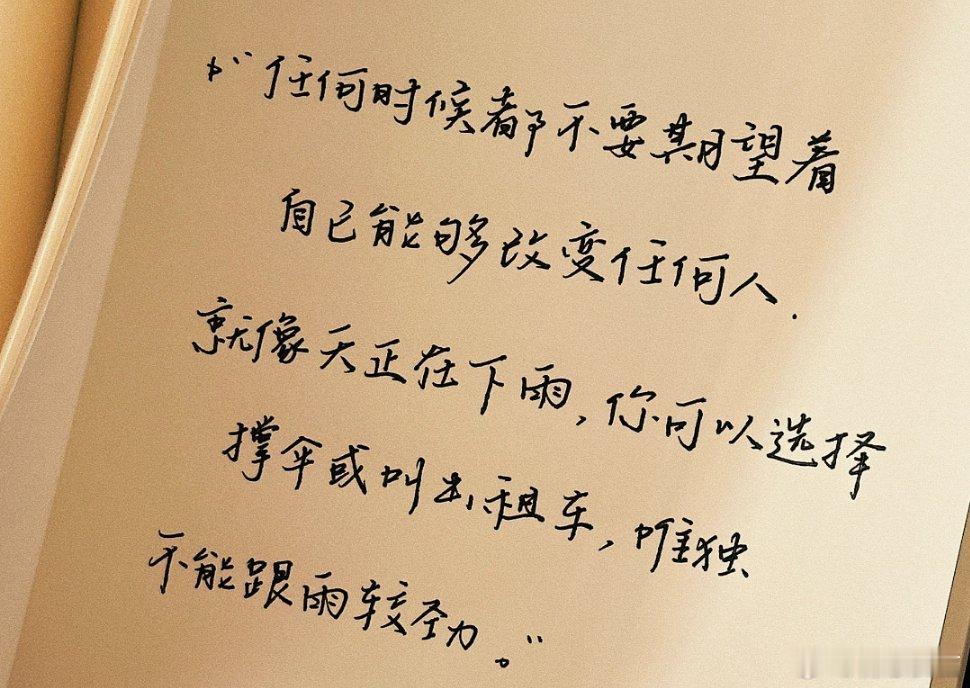 “任何时候都不要期望着
自己能够改变任何人.
就像天正在下雨,你可以选择
撑伞或叫出租车,唯独
不能跟雨较劲。”